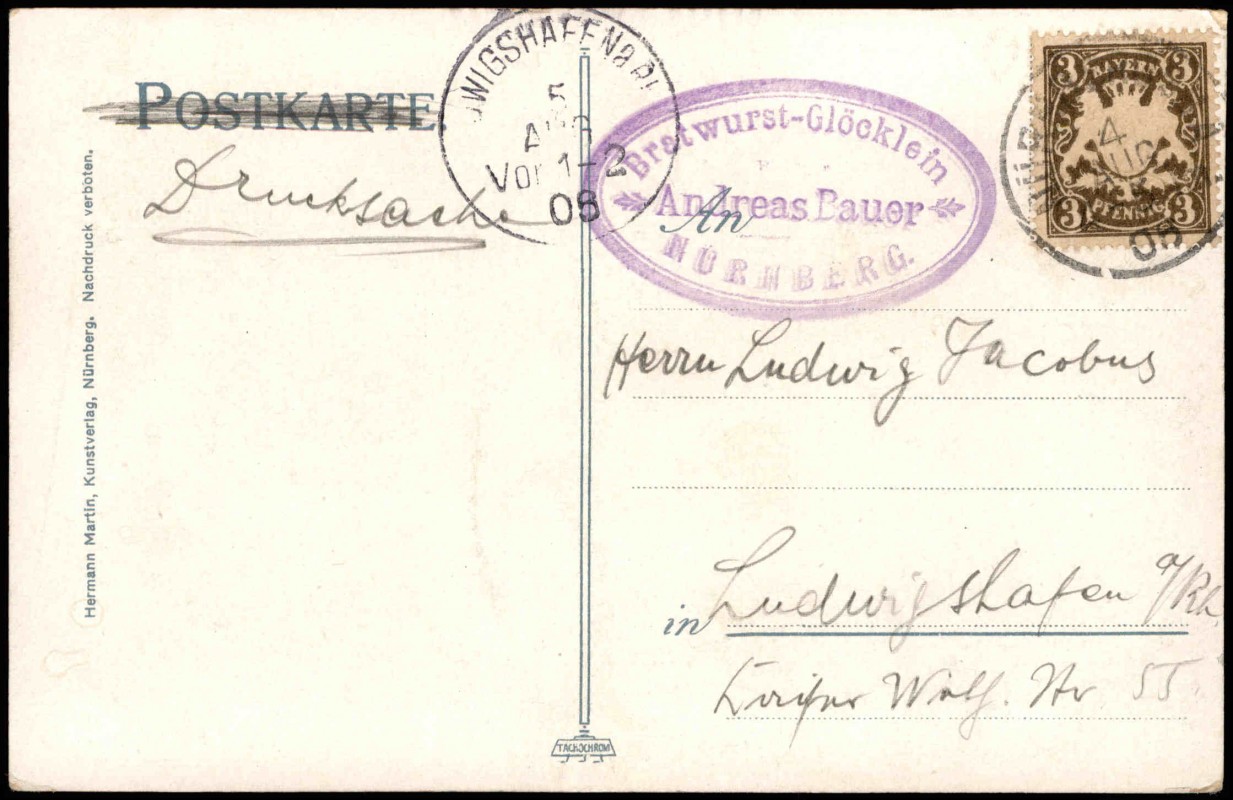 POSTKARTE
Drucksache
Hermann Martin, Kunstverlag, Nürnberg. Nachdruck verboten.
WIGSHAFEN a. R
5
AUG
Vor 1-2
08
Bratwurst-Glöcklein
Andreas Bauer
NÜRNBERG.
An
3 BAYERN 3
3 PFENNIG 3
4
AUG
08
Herrn Ludwig Jacobus
in Ludwigshafen a/Rh.
Nr 55
TACHOCHROM